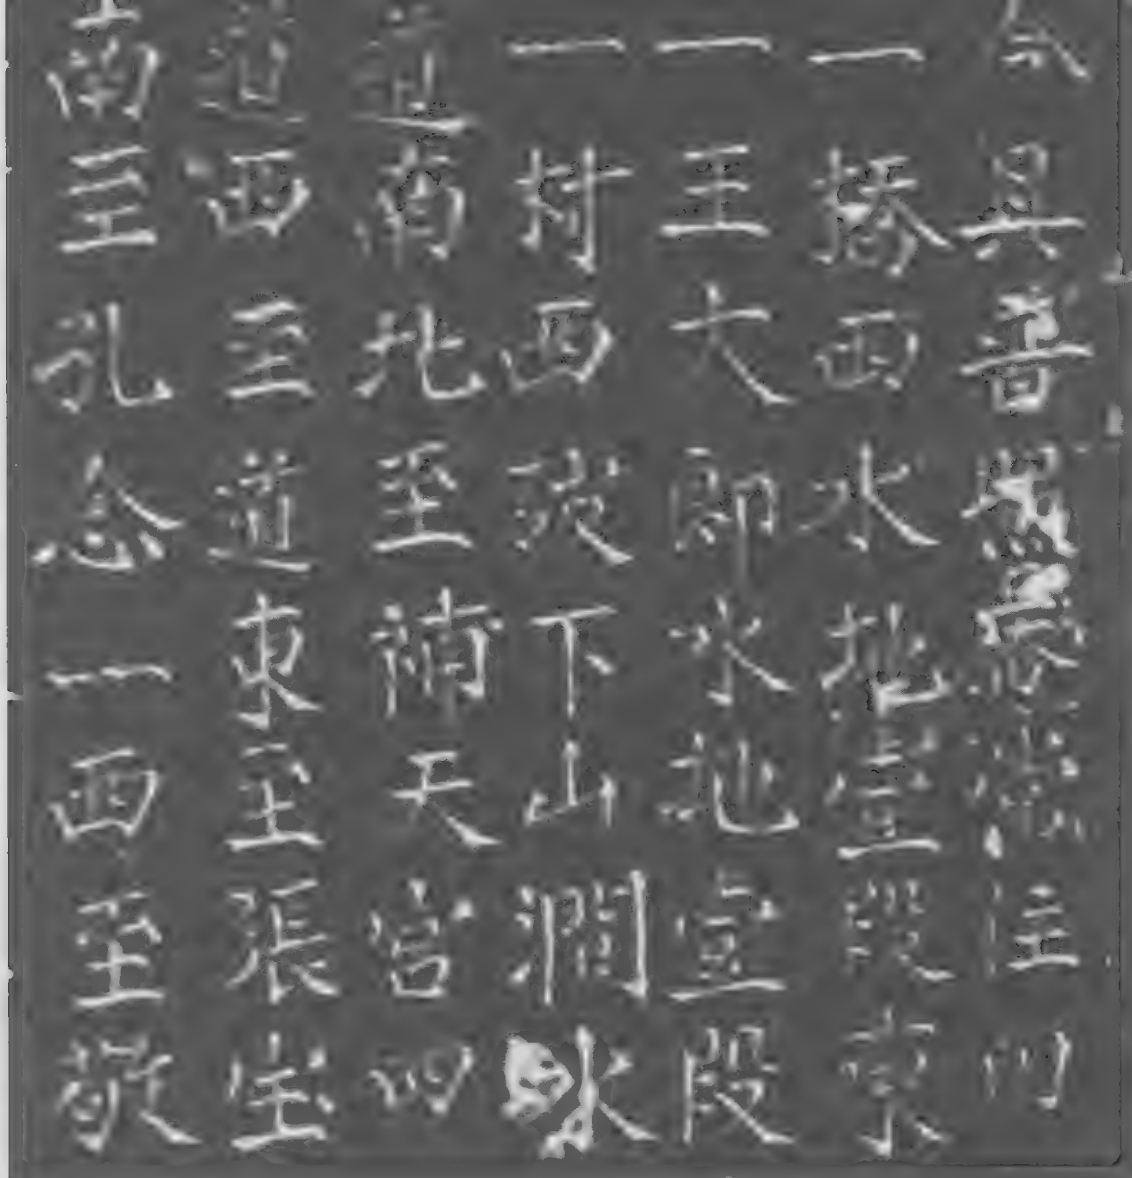 今具普照住門
一橋西水地壹段東
一王大郎水地壹段
一村西下山澗水
道南北至補天宫四
道西至道東至張宝
南至孔念一西至敬